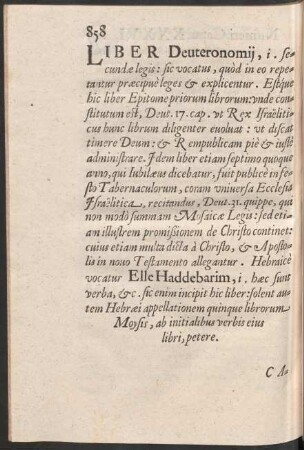 858
LIBER Deuteronomij, i. se-
cundæ legis: sic vocatus, quòd in eo repe-
tantur præcipuè leges & explicentur. Estq́ue
hic liber Epitome priorum librorum: vnde con-
stitutum est, Deut. 17. cap. vt Rex Israëliti-
cus hunc librum diligenter euoluat: vt discat
timere Deum: & Rempublicam piè & iustè
administrare. Idem liber etiam septimo quoque
anno, qui Iubilæus dicebatur, fuit publicè in fe-
sto Tabernaculorum, coram vniuersa Ecclesia
Israëlitica, recitandus, Deut. 31. quippe, qui
non modò summam Mosaicæ Legis: sed eti-
am illustrem promissionem de Christo continet:
cuius etiam multa dicta à Christo, & Aposto-
lis in nouo Testamento allegantur. Hebraicè
vocatur Elle Haddebarim, i. hæc sunt
verba, &c. sic enim incipit hic liber: solent au-
tem Hebræi appellationem quinque librorum
Moysis, ab initialibus verbis eius
libri, petere.
C A-